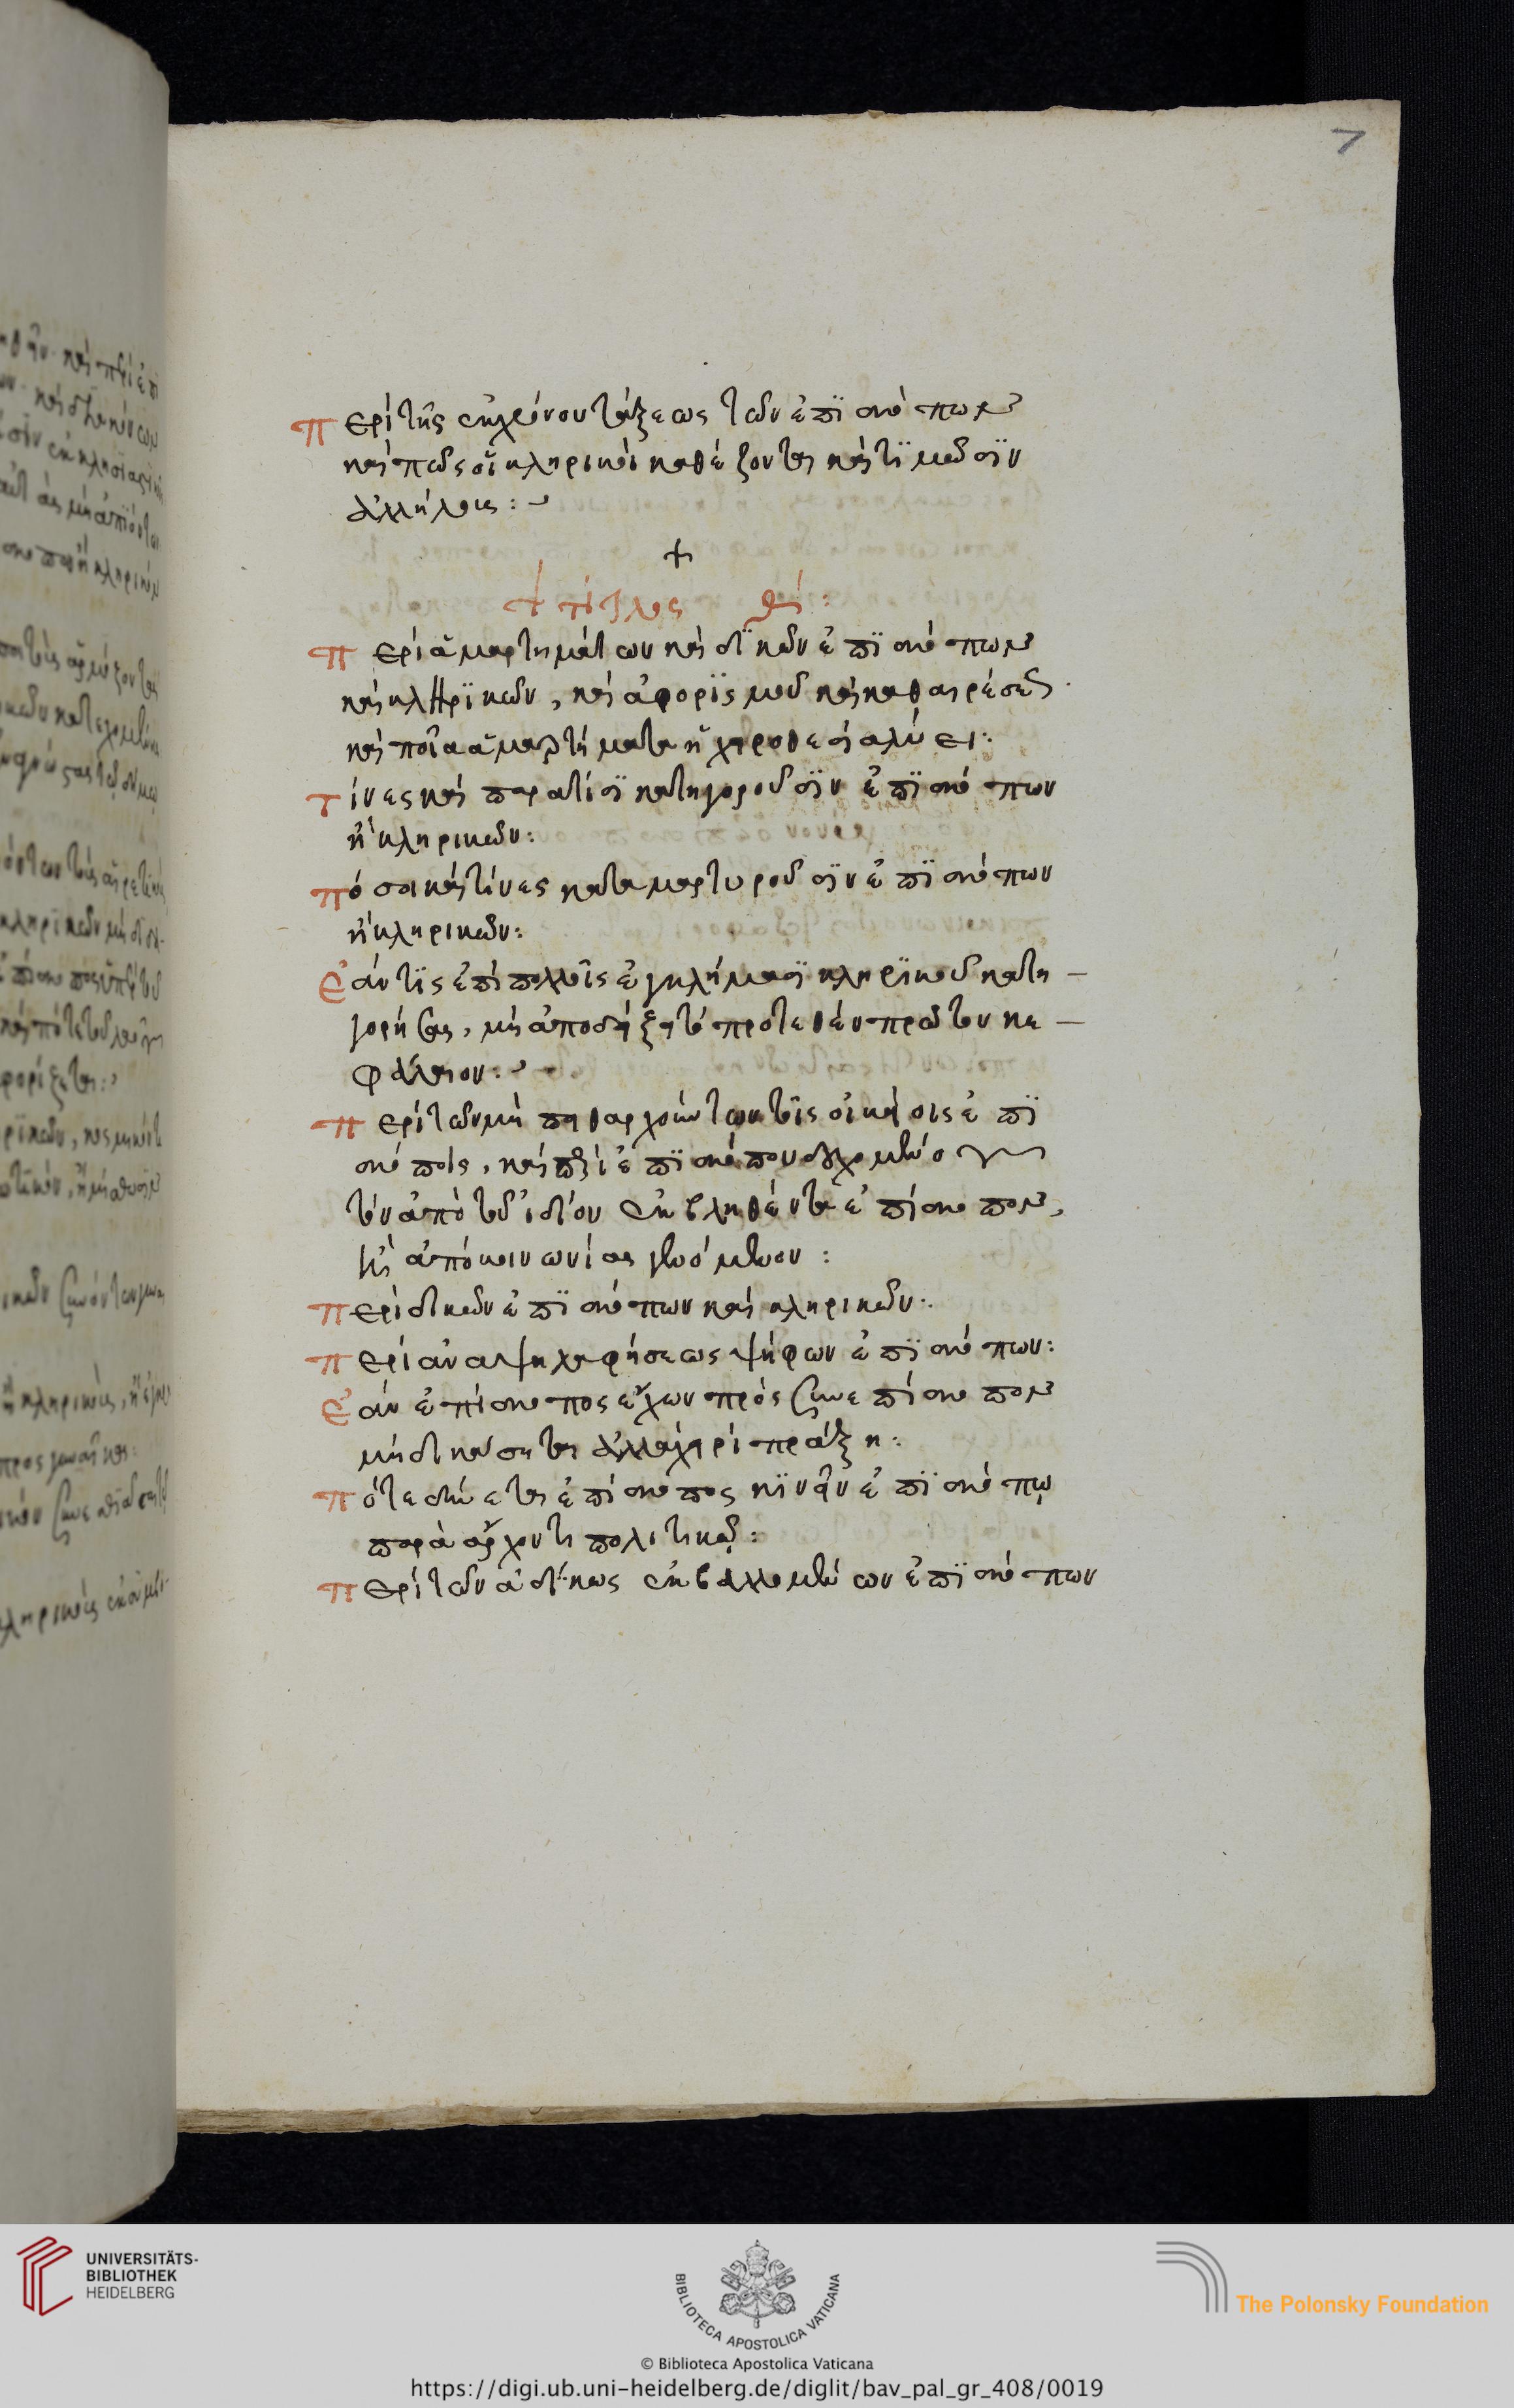 7
Περὶ τῆς ἐκ χρόνου τάξεως τῶν ἐπισκόπων
καὶ πῶς οἱ κληρικοὶ καθέζονται καὶ τιμῶσιν
ἀλλήλους:
+
+ τίτλος θ΄:
Περὶ ἁμαρτημάτων καὶ δικῶν ἐπισκόπων
καὶ κληρικῶν, καὶ ἀφορισμοῦ καὶ καθαιρέσεως
καὶ ποῖα ἁμαρτήματα ἡ χειροθεσία λύει:
Τίνες καὶ παρὰ τίσι κατηγοροῦσιν ἐπισκόπων
ἢ κληρικῶν:
Πόσοι καὶ τίνες καταμαρτυροῦσιν ἐπισκόπων
ἢ κληρικῶν:
Ἐάν τις ἐπὶ πολλοῖς ἐγκλήμασι κληρικοῦ κατη
γορήσας, μὴ ἀποδείξῃ τὸ προτεθὲν πρῶτον κε
φάλαιον:
Περὶ τῶν μὴ πειθαρχούντων τοῖς οἰκείοις ἐπι
σκόποις, καὶ περὶ ἐπισκόπου δεχομένου
τὸν ἀπὸ τοῦ ἰδίου ἐκβληθέντα ἐπίσκοπον,
ἢ ἀποκοινωνίας γενόμενον:
Περὶ δικῶν ἐπισκόπων καὶ κληρικῶν:
Περὶ ἀναψηλαφήσεως ψήφων ἐπισκόπων:
Ἐὰν ἐπίσκοπος ἔχων πρὸς συνεπίσκοπον
μὴ δικάσηται ἀλλὰ χειρὶ πράξῃ:
Πότε δύνεται ἐπίσκοπος κινεῖν ἐπισκόπῳ
παρὰ ἄρχοντι πολιτικῷ:
Περὶ τῶν ἀδίκως ἐκβαλλομένων ἐπισκόπων
UNIVERSITÄTS-
BIBLIOTHEK
HEIDELBERG
BIBLIOTECA APOSTOLICA VATICANA
The Polonsky Foundation
© Biblioteca Apostolica Vaticana
https://digi.ub.uni-heidelberg.de/diglit/bav_pal_gr_408/0019